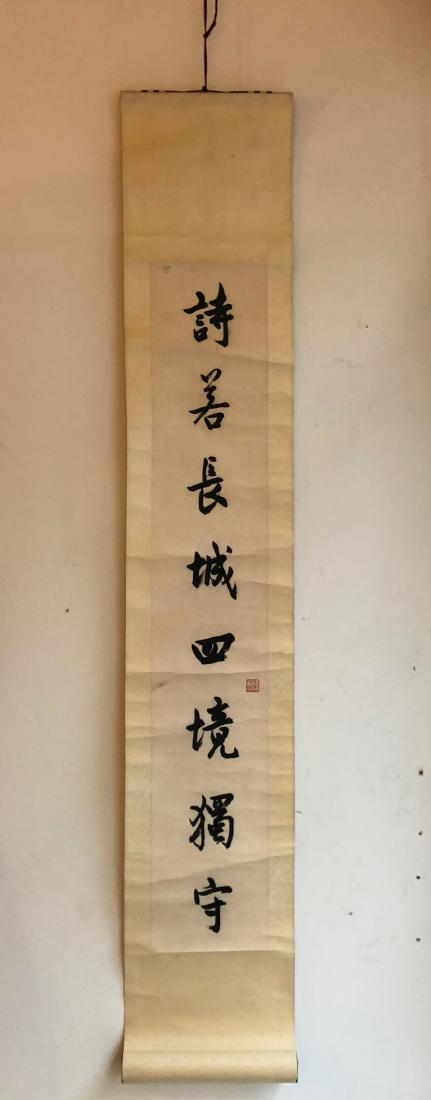 詩若長城四境獨守